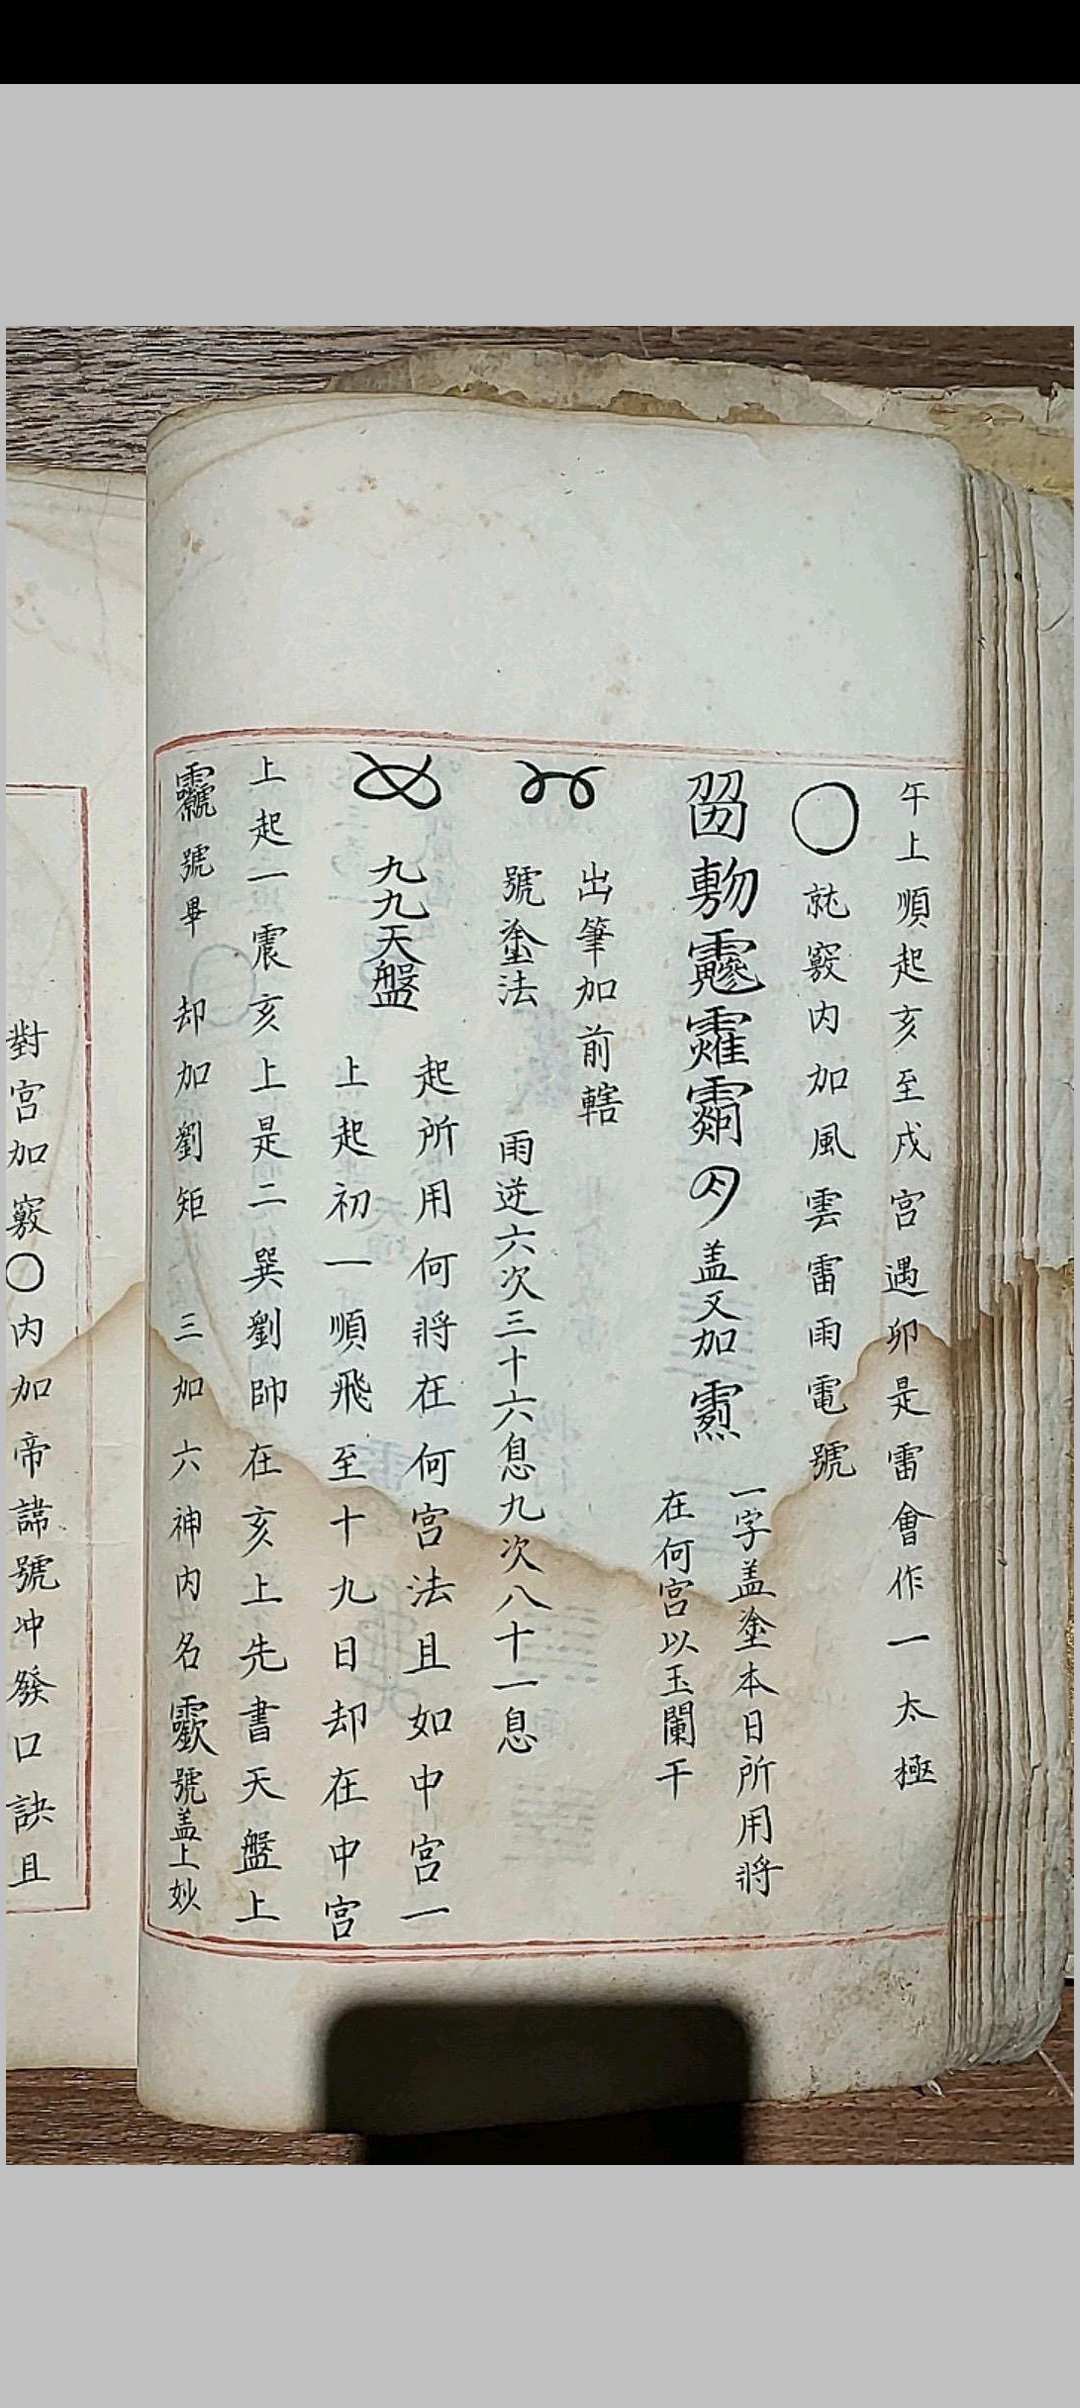 午上順起亥至戌宮遇卯是雷會作一太極
〇就竅内加風雲雷雨電號
盖又加
一字盖塗本日所用將
在何宮以玉闌干
出筆加前轄
號塗法
雨逆六次三十六息九次八十一息
九九天盤
起所用何將在何宮法且如中宮一
上起初一順飛至十九日却在中宮
上起一震亥上是二巽劉帥在亥上先書天盤上
號畢 却加劉矩 三加六神内名 號盖上妙
對宮加竅〇内加帝諱號冲發口訣且